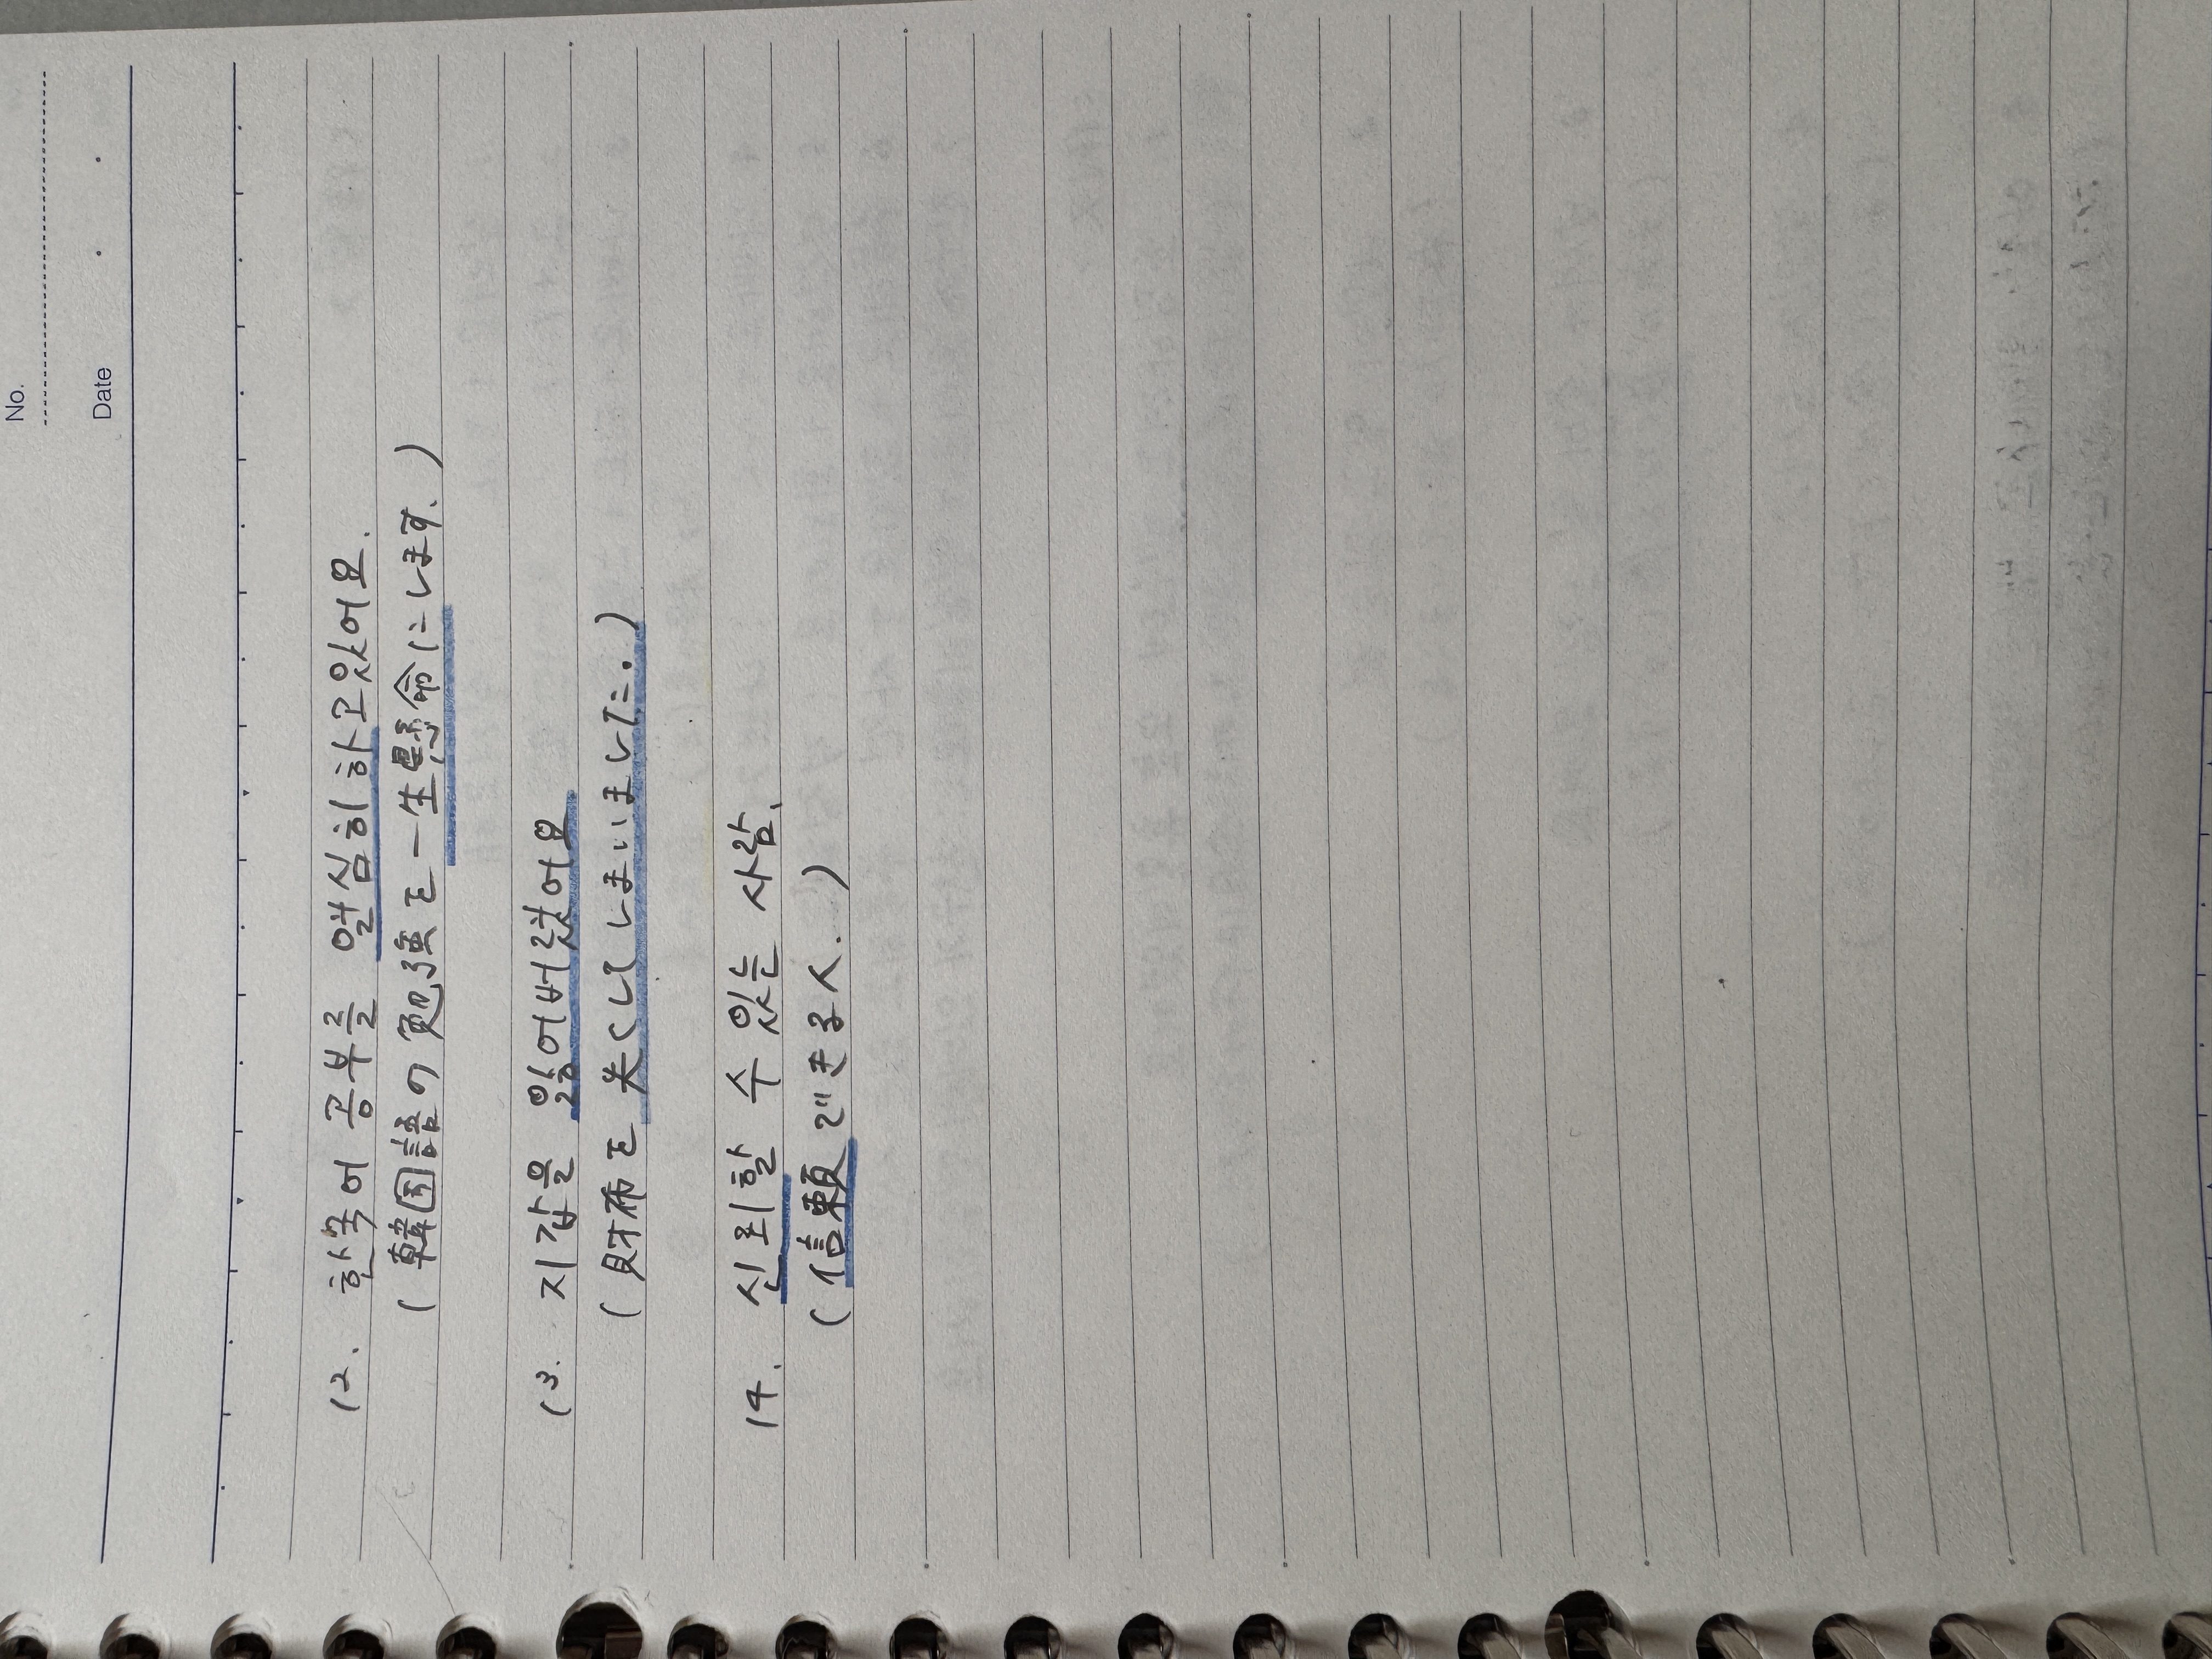 No.
Date
12. 한국어 공부를 열심히하고있어요.
(韓国語の勉強を一生懸命にします.)
13. 지갑을 잃어버렸어요
(財布を失くしてしまいました.)
14. 신뢰할 수 있는 사람.
(信頼できる人.)